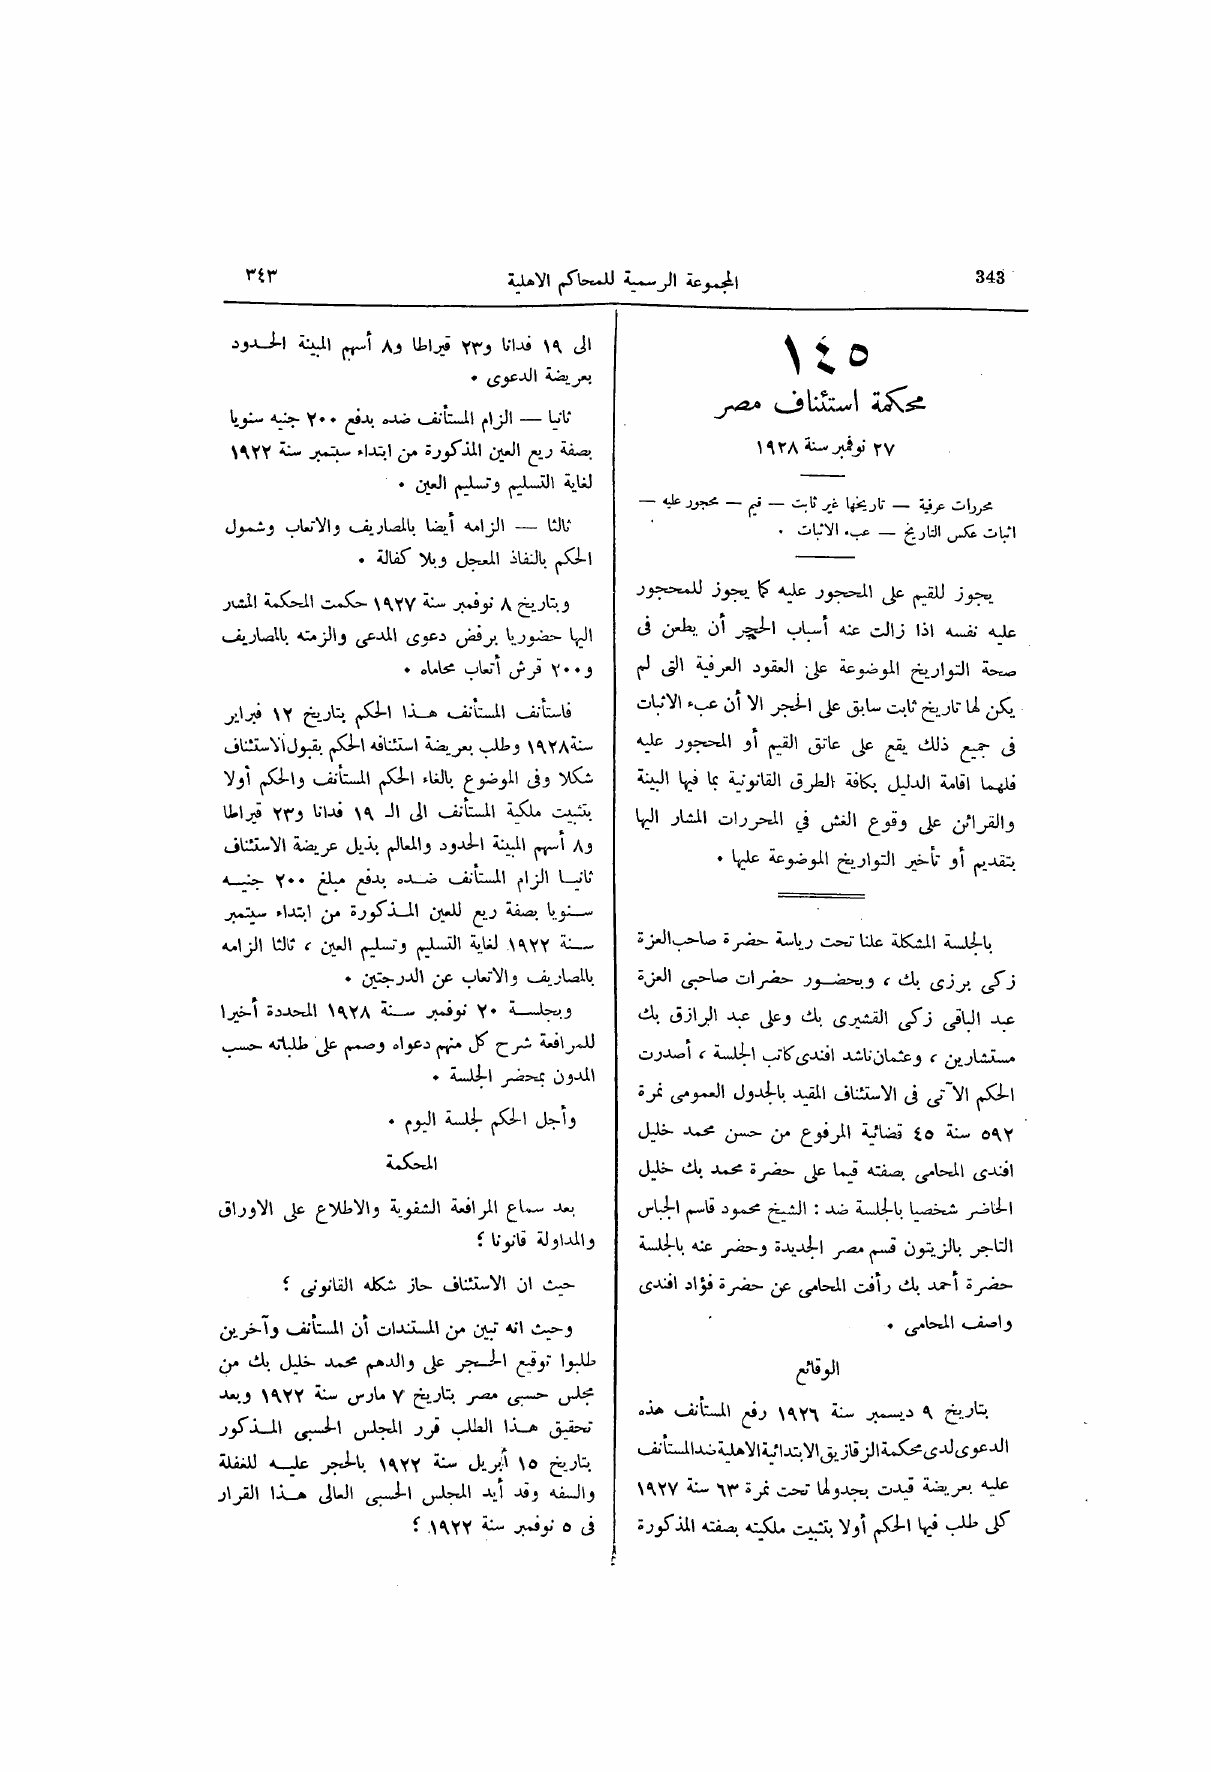 343
المجموعة الرسمية للمحاكم الاهلية
٣٤٣
١٤٥
محكمة استئناف مصر
٢٧ نوفمبر سنة ١٩٢٨
محررات عرفية — تاريخها غير ثابت — قيم — محجور عليه —
اثبات عكس التاريخ — عبء الاثبات .
يجوز للقيم على المحجور عليه كما يجوز للمحجور
عليه نفسه اذا زالت عنه أسباب الحجر أن يطعن فى
صحة التواريخ الموضوعة على العقود العرفية التى لم
يكن لها تاريخ ثابت سابق على الحجر الا أن عبء الاثبات
فى جميع ذلك يقع على عاتق القيم أو المحجور عليه
فلهما اقامة الدليل بكافة الطرق القانونية بما فيها البينة
والقرائن على وقوع الغش في المحررات المشار اليها
بتقديم أو تأخير التواريخ الموضوعة عليها .
بالجلسة المشكلة علنا تحت رياسة حضرة صاحب العزة
زكى برزى بك ، وبحضور حضرات صاحبى العزة
عبد الباقى زكى القشيرى بك وعلى عبد الرازق بك
مستشارين ، وعثمان ناشد افندى كاتب الجلسة ، أصدرت
الحكم الآتى فى الاستئناف المقيد بالجدول العمومى نمرة
٥٩٢ سنة ٤٥ قضائية المرفوع من حسن محمد خليل
افندى المحامى بصفته قيما على حضرة محمد بك خليل
الحاضر شخصيا بالجلسة ضد : الشيخ محمود قاسم الجباس
التاجر بالزيتون قسم مصر الجديدة وحضر عنه بالجلسة
حضرة أحمد بك رأفت المحامى عن حضرة فؤاد افندى
واصف المحامى .
الوقائع
بتاريخ ٩ ديسمبر سنة ١٩٢٦ رفع المستأنف هذه
الدعوى لدى محكمة الزقازيق الابتدائية الاهلية ضد المستأنف
عليه بعريضة قيدت بجدولها تحت نمرة ٦٣ سنة ١٩٢٧
كلى طلب فيها الحكم أولا بتثبيت ملكيته بصفته المذكورة
الى ١٩ فدانا و٢٣ قيراطا و٨ أسهم المبينة الحدود
بعريضة الدعوى .
ثانيا — الزام المستأنف ضده بدفع ٢٠٠ جنيه سنويا
بصفة ريع العين المذكورة من ابتداء سبتمبر سنة ١٩٢٢
لغاية التسليم وتسليم العين .
ثالثا — الزامه أيضا بالمصاريف والاتعاب وشمول
الحكم بالنفاذ المعجل وبلا كفالة .
وبتاريخ ٨ نوفمبر سنة ١٩٢٧ حكمت المحكمة المشار
اليها حضوريا برفض دعوى المدعى والزمته بالمصاريف
و٢٠٠ قرش أتعاب محاماه .
فاستأنف المستأنف هذا الحكم بتاريخ ١٢ فبراير
سنة ١٩٢٨ وطلب بعريضة استئنافه الحكم بقبول الاستئناف
شكلا وفى الموضوع بالغاء الحكم المستأنف والحكم أولا
بتثبيت ملكية المستأنف الى الـ ١٩ فدانا و٢٣ قيراطا
و٨ أسهم المبينة الحدود والمعالم بذيل عريضة الاستئناف
ثانيا الزام المستأنف ضده بدفع مبلغ ٢٠٠ جنيه
سنويا بصفة ريع للعين المذكورة من ابتداء سبتمبر
سنة ١٩٢٢ لغاية التسليم وتسليم العين ، ثالثا الزامه
بالمصاريف والاتعاب عن الدرجتين .
وبجلسة ٢٠ نوفمبر سنة ١٩٢٨ المحددة أخيرا
للمرافعة شرح كل منهم دعواه وصمم على طلباته حسب
المدون بمحضر الجلسة .
وأجل الحكم لجلسة اليوم .
المحكمة
بعد سماع المرافعة الشفوية والاطلاع على الاوراق
والمداولة قانونا ؛
حيث ان الاستئناف حاز شكله القانونى ؛
وحيث انه تبين من المستندات أن المستأنف وآخرين
طلبوا توقيع الحجر على والدهم محمد خليل بك من
مجلس حسبى مصر بتاريخ ٧ مارس سنة ١٩٢٢ وبعد
تحقيق هذا الطلب قرر المجلس الحسبى المذكور
بتاريخ ١٥ أبريل سنة ١٩٢٢ بالحجر عليه للغفلة
والسفه وقد أيد المجلس الحسبى العالى هذا القرار
فى ٥ نوفمبر سنة ١٩٢٢ ؛